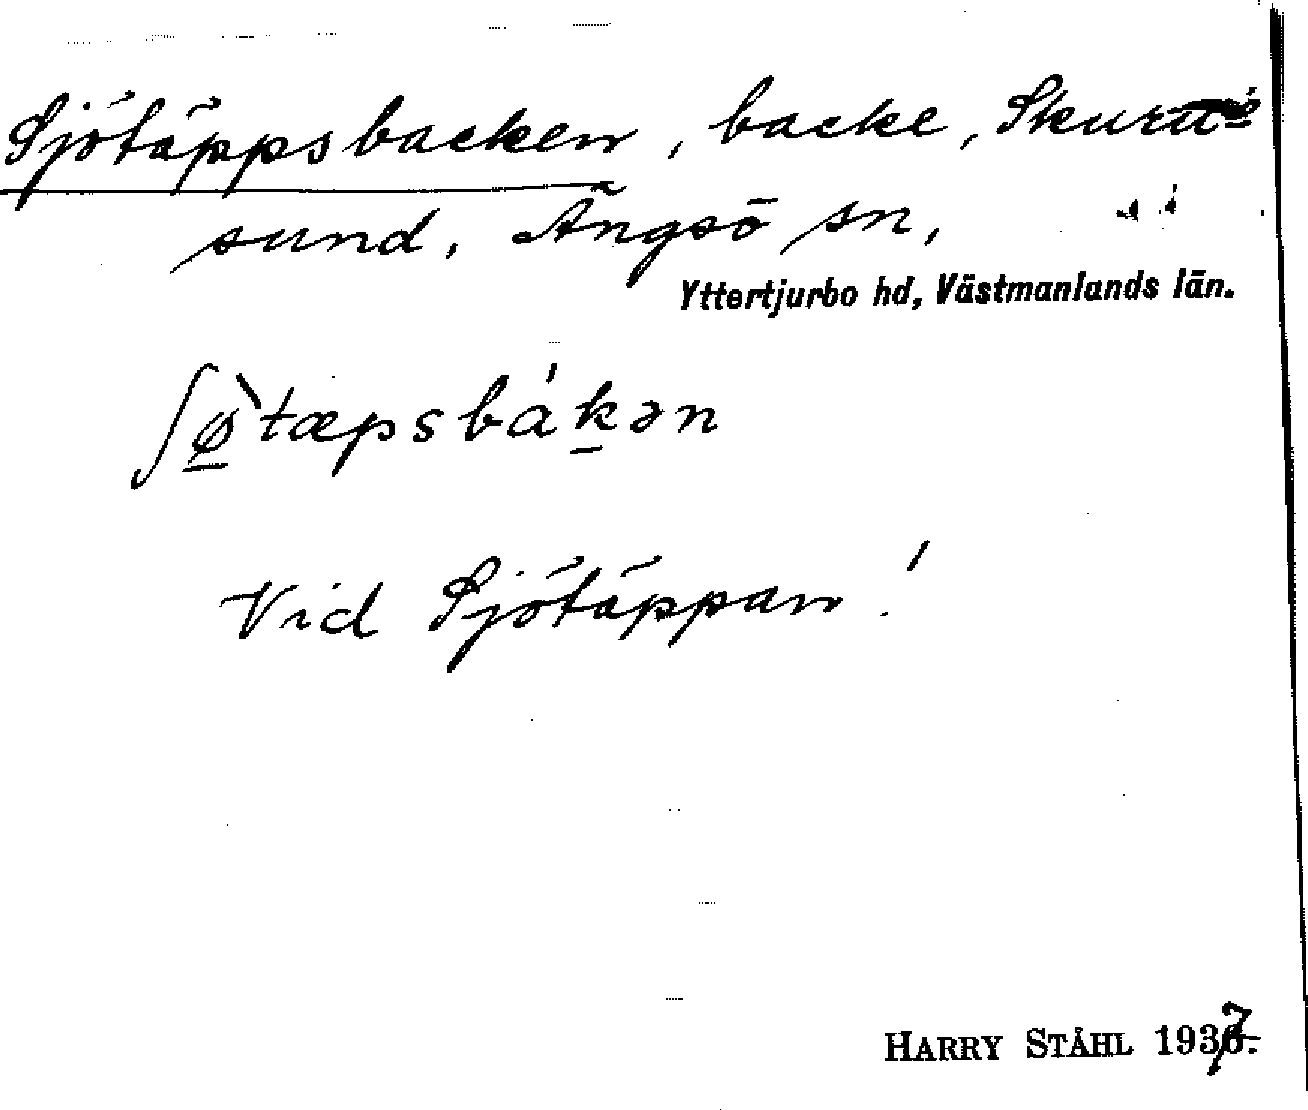 Sjötäppsbacken, backe, Skuru-
sund, Ängsö sn,
Yttertjurbo hd, Västmanlands län.
ʃø̠̀tæpsbák̠ən
Vid Sjötäppan!
HARRY STÅHL 1937.